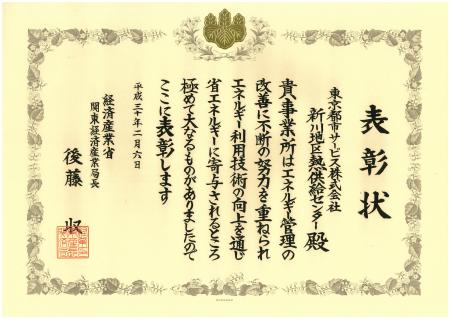 表彰状
東京都市サービス株式会社
新川地区熱供給センター殿
貴事業所はエネルギー管理の
改善に不断の努力を重ねられ
エネルギー利用技術の向上を通じ
省エネルギーに寄与されるところ
極めて大なるものがありましたので
ここに表彰します
平成三十年二月六日
経済産業省
関東経済産業局長
後藤 収